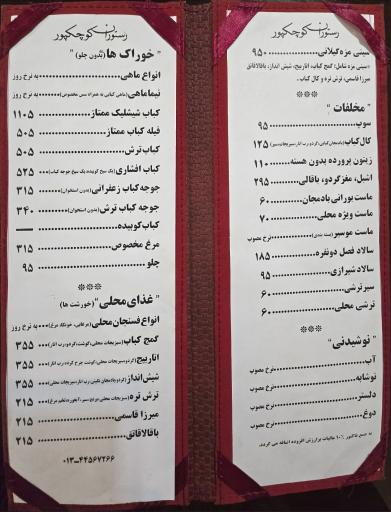 رستوران کوچکپور
" خوراک ها (بدون چلو) "
انواع ماهی ........ به نرخ روز
نیما ماهی (ماهی کبابی به همراه سس مخصوص) ........ به نرخ روز
کباب شیشلیک ممتاز ........ ۱۱۰۵
فیله کباب ممتاز ........ ۵۰۵
کباب ترش ........ ۵۰۵
کباب افشاری (یک سیخ کوبیده یک سیخ جوجه کباب) ........ ۵۲۵
جوجه کباب زعفرانی (بدون استخوان) ........ ۳۱۵
جوجه کباب ترش (بدون استخوان) ........ ۳۴۰
کباب کوبیده ........ —
مرغ مخصوص ........ ۳۱۵
چلو ........ ۹۵
***
" غذای محلی " (خورشت ها)
انواع فسنجان محلی (مرغابی، خوتکا، مرغ) ... به نرخ روز
گمج کباب (سبزیجات محلی، گوشت، گردو، رب انار) ... ۳۵۵
اناربیج (گردو، سبزیجات محلی، گوشت چرخ کرده، رب انار) ... ۳۵۵
شیش انداز ... ۳۵۵
ترش تره ... ۲۱۵
میرزا قاسمی ........ ۲۱۵
باقالاقاتق ........ ۲۱۵
۰۱۳-۴۴۵۶۷۲۶۶
رستوران کوچکپور
سینی مزه گیلانی ........ ۹۵۰
«سینی مزه شامل: گمج کباب، اناربیج، شیش انداز، باقالاقاتق
میرزا قسمی، ترش تره و کال کباب»
***
" مخلفات "
سوپ ........ ۹۵
کال کباب (بادمجان کبابی، گردو، رب انار، سبزیجات، سیر) ... ۱۲۵
زیتون پرورده بدون هسته ........ ۱۱۰
اشپل، مغزگردو، باقالی ........ ۲۹۵
ماست بورانی بادمجان ........ ۶۰
ماست ویژه محلی ........ ۷۰
ماست موسیر (بسته بندی) ........ نرخ مصوب
سالاد فصل دونفره ........ ۱۸۵
سالاد شیرازی ........ ۹۵
سیرترشی ........ ۶۰
ترشی محلی ........ ۶۰
***
" نوشیدنی "
آب ........ نرخ مصوب
نوشابه ........ نرخ مصوب
دلستر ........ نرخ مصوب
دوغ ........ نرخ مصوب
* به جمع فاکتور ۱۰٪ مالیات برارزش افزوده اضافه می گردد.